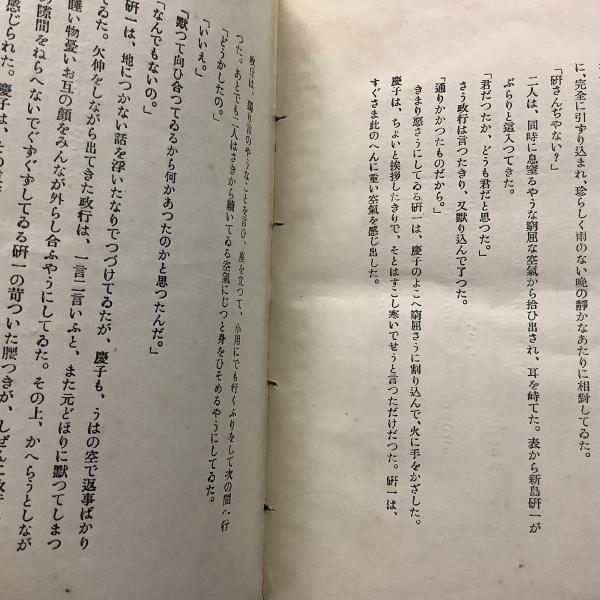 に、完全に引ずり込まれ、珍らしく雨のない晩の靜かなあたりに相對してゐた。
「硏さんぢやない？」
二人は、同時に息窒るやうな窮屈な空氣から拾ひ出され、耳を峙てた。表から新島硏一が
ぶらりと這入つてきた。
「君だつたか、どうも君だと思つた。」
さう政行は言つたきり、又默り込んで了つた。
「通りかかつたものだから。」
きまり惡さうにしてゐる硏一は、慶子のよこへ窮屈さうに割り込んで、火に手をかざした。
慶子は、ちよいと挨拶したきりで、そとはすこし寒いでせうと言つただけだつた。硏一は、
すぐさま此のへんに重い空氣を感じ出した。
政行は、獨り言のやうなことを言ひ、座を立つて、小用にでも行くふりをして次の間へ行
つた。あとでも二人はさきから續いてゐる空氣にじつと身をひそめるやうにしてゐた。
「どうかしたの。」
「いいえ。」
「默つて向ひ合つてゐるから何かあつたのかと思つたんだ。」
「なんでもないの。」
硏一は、地につかない話を浮いたなりでつづけてゐたが、慶子も、うはの空で返事ばかり
てゐた。欠伸をしながら出てきた政行は、一言二言いふと、また元どほりに默つてしまつ
睡い物憂いお互の顏をみんなが外らし合ふやうにしてゐた。その上、かへらうとしなが
の隙間をねらへないでぐずぐずしてゐる硏一の苛ついた腰つきが、しぜんに
感じられた。慶子は、